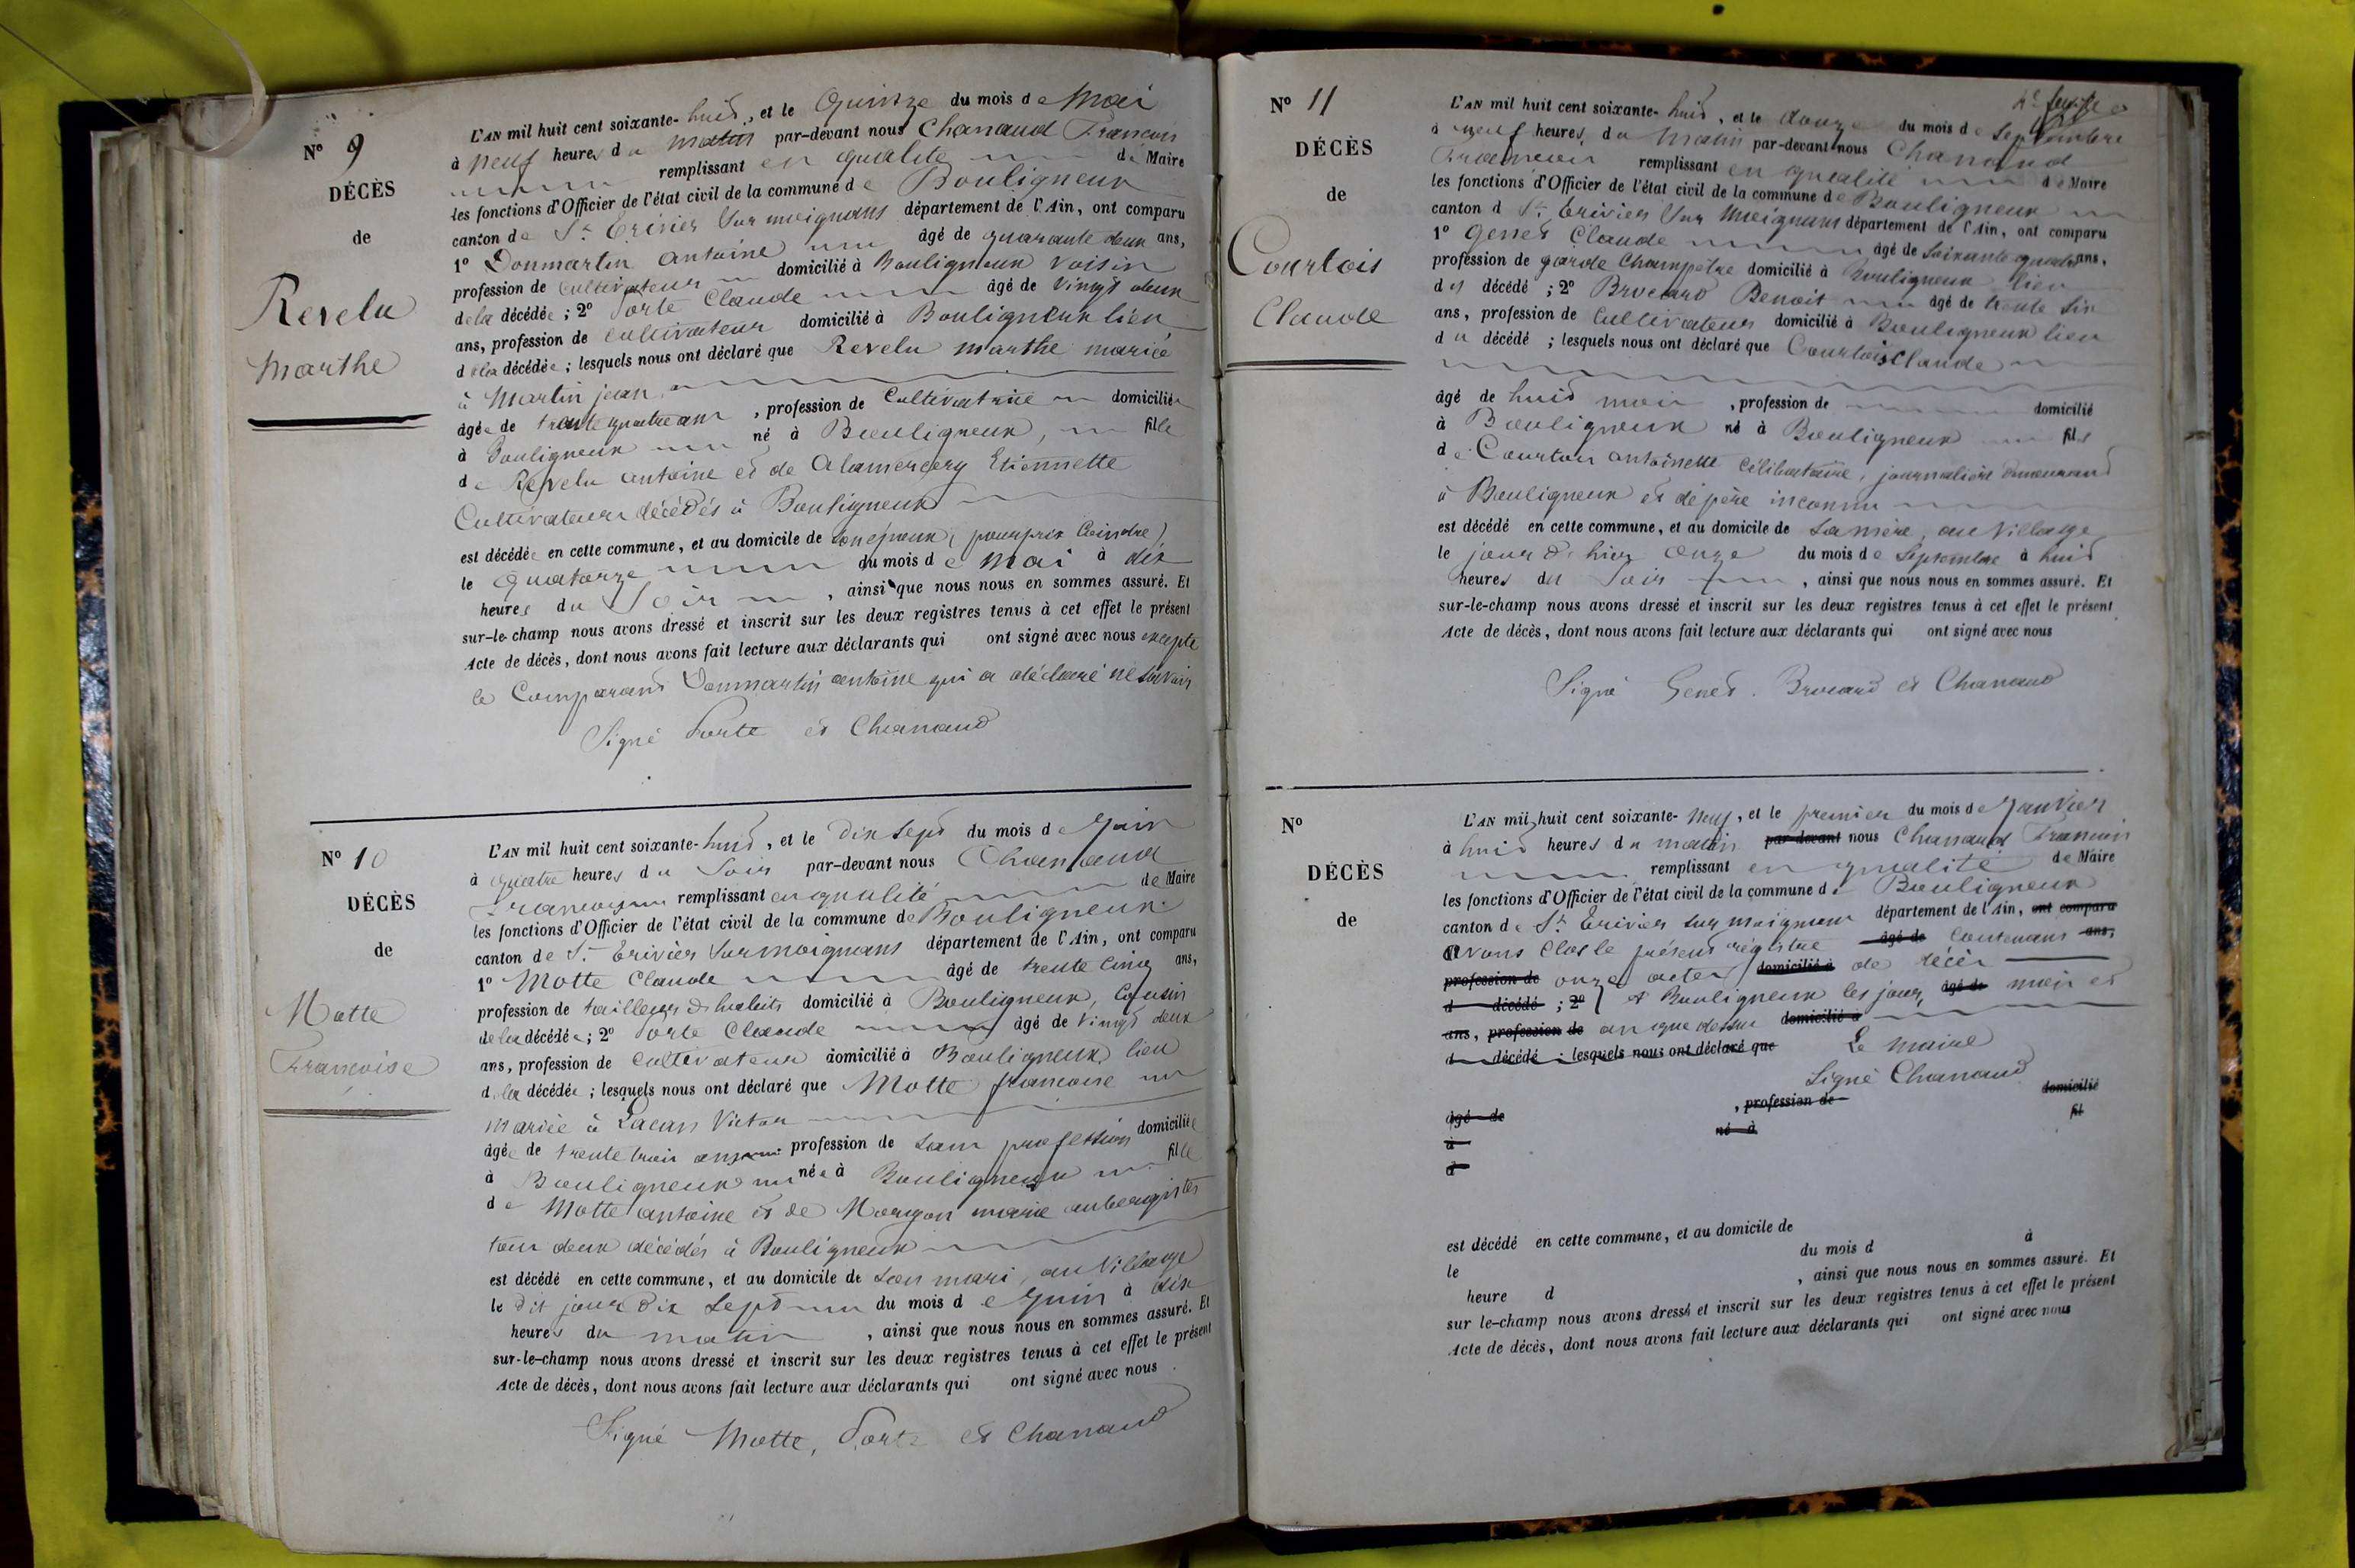 N° 9
DÉCÈS
de
Revelu
Marthe
L'AN mil huit cent soixante-huit, et le Quinze du mois de Mai
à neuf heures du matin par-devant nous Chanaud Francois
remplissant en qualité de Maire
les fonctions d'Officier de l'état civil de la commune de Bouligneux
canton de St Trivier Sur moignans département de l'Ain, ont comparu
1° Donmartin antoine âgé de quarante deux ans,
profession de Cultivateur domicilié à Bouligneux voisin
de la décédée ; 2° Porte Claude âgé de vingt deux
ans, profession de cultivateur domicilié à Bouligneux lieu
de la décédée ; lesquels nous ont déclaré que Revelu marthe mariée
à Martin jean
âgée de trente quatre ans , profession de Cultivatrice domiciliée
à Bouligneux né à Bouligneux, fille
de Revelu antoine et de Alamercery Etiennette
Cultivateurs décédés à Bouligneux
est décédée en cette commune, et au domicile de son époux (
le Quatorze du mois de Mai à dix
heures du Soir , ainsi que nous nous en sommes assuré. Et
sur-le-champ nous avons dressé et inscrit sur les deux registres tenus à cet effet le présent
Acte de décès, dont nous avons fait lecture aux déclarants qui ont signé avec nous excepté
le Comparant Donmartin antoine qui a déclaré ne savoir
Signé Porte et Chanaud
N° 10
DÉCÈS
de
Motte
Francoise
L'AN mil huit cent soixante-huit, et le Dix sept du mois de Juin
à quatre heures du Soir par-devant nous Chanaud
Francois remplissant en qualité de Maire
les fonctions d'Officier de l'état civil de la commune de Bouligneux
canton de St Trivier Sur moignans département de l'Ain, ont comparu
1° Motte Claude âgé de trente cinq ans,
profession de tailleur d'habits domicilié à Bouligneux, Cousin
de la décédée ; 2° Porte Claude âgé de vingt deux
ans, profession de Cultivateur domicilié à Bouligneux lieu
de la décédée ; lesquels nous ont déclaré que Motte francoise
mariée à Lacan Victor
âgée de trente trois ans profession de Sans profession domiciliée
à Bouligneux née à Bouligneux fille
de Motte antoine et de Morgon marie aubergistes
tous deux décédés à Bouligneux
est décédé en cette commune, et au domicile de son mari, au Village
le dit jour Dix Sept du mois de Juin à dix
heures du matin , ainsi que nous nous en sommes assuré. Et
sur-le-champ nous avons dressé et inscrit sur les deux registres tenus à cet effet le présent
Acte de décès, dont nous avons fait lecture aux déclarants qui ont signé avec nous
Signé Motte, Porte et Chanaud
N° 11
DÉCÈS
de
Courtois
Claude
L'AN mil huit cent soixante-huit, et le douze du mois de Septembre
à neuf heures du Matin par-devant nous Chanaud
Francois remplissant en qualité de Maire
les fonctions d'Officier de l'état civil de la commune de Bouligneux
canton d St Trivier Sur Moignans département de l'Ain, ont comparu
1° Genet Claude âgé de Soixante quatre ans,
profession de garde Champêtre domicilié à Bouligneux lieu
du décédé ; 2° Brocard Benoit âgé de trente six
ans, profession de Cultivateur domicilié à Bouligneux lieu
du décédé ; lesquels nous ont déclaré que Courtois Claude
âgé de huit mois , profession de domicilié
à Bouligneux né à Bouligneux fils
de Courtois antoinette célibataire, journalière demeurant
à Bouligneux et de père inconnu
est décédé en cette commune, et au domicile de Sa mère, au Village
le jour d'hier onze du mois de Septembre à huit
heures du Soir , ainsi que nous nous en sommes assuré. Et
sur-le-champ nous avons dressé et inscrit sur les deux registres tenus à cet effet le présent
Acte de décès, dont nous avons fait lecture aux déclarants qui ont signé avec nous
Signé Genet. Brocard et Chanaud
N°
DÉCÈS
de
L'AN mil huit cent soixante-neuf, et le premier du mois de Janvier
à huit heures du matin par-devant nous Chanaud Francois
remplissant en qualité de Maire
les fonctions d'Officier de l'état civil de la commune de Bouligneux
canton de St Trivier sur moignans département de l'Ain, ont comparu
avons Clos le présent régistre âgé de Contenant ans,
profession de onze actes domicilié à de décès
d décédé ; 2° à Bouligneux les jour, âgé de mois et
ans, profession de an que dessus domicilié à
d décédé ; lesquels nous ont déclaré que Le Maire
Signé Chanaud
âgé de , profession de domicilié
à né à fil
d
est décédé en cette commune, et au domicile de
le du mois d à
heure d , ainsi que nous nous en sommes assuré. Et
sur le-champ nous avons dressé et inscrit sur les deux registres tenus à cet effet le présent
Acte de décès, dont nous avons fait lecture aux déclarants qui ont signé avec nous